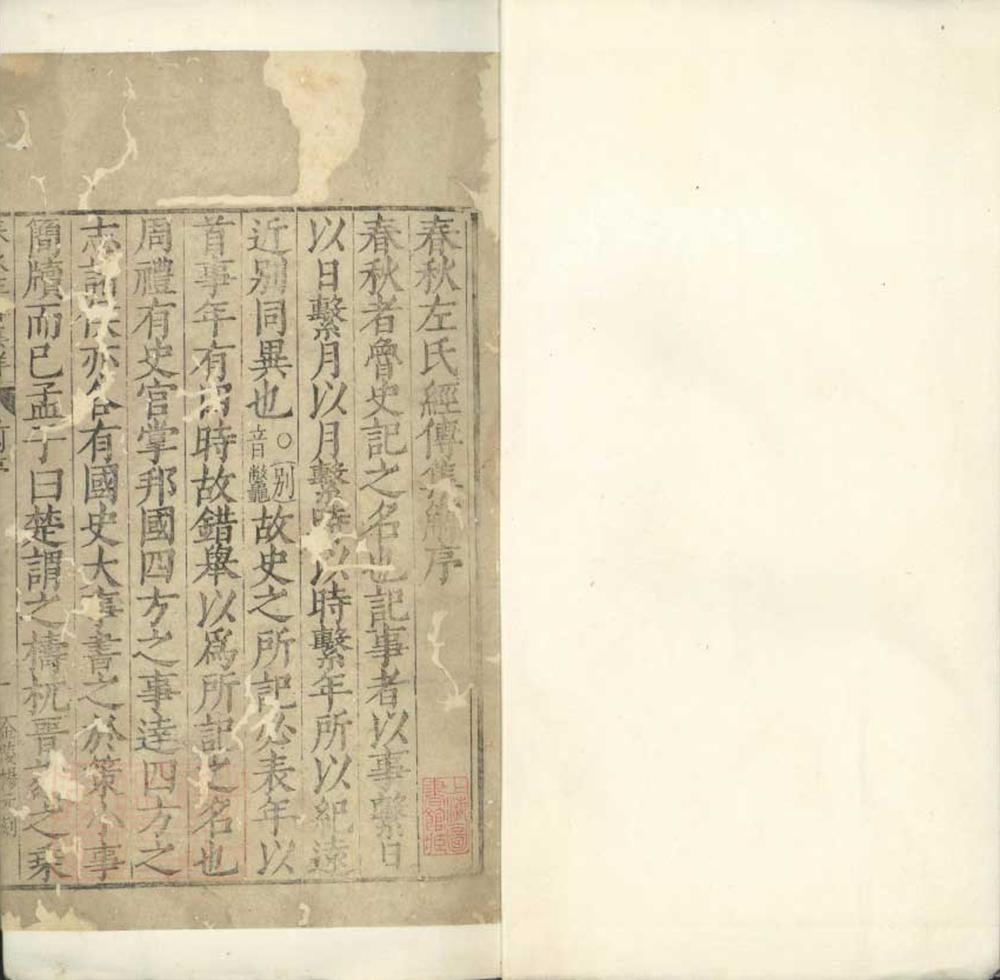 春秋左氏經傳集解序
春秋者魯史記之名也記事者以事繫日
以日繫月以月繫時以時繫年所以紀遠
近別同異也○別音鼈故史之所記必表年以
首事年有四時故錯舉以為所記之名也
周禮有史官掌邦國四方之事達四方之
志諸侯亦各有國史大事書之於策小事
簡牘而已孟子曰楚謂之檮杌晉謂之乘
上海圖書館藏